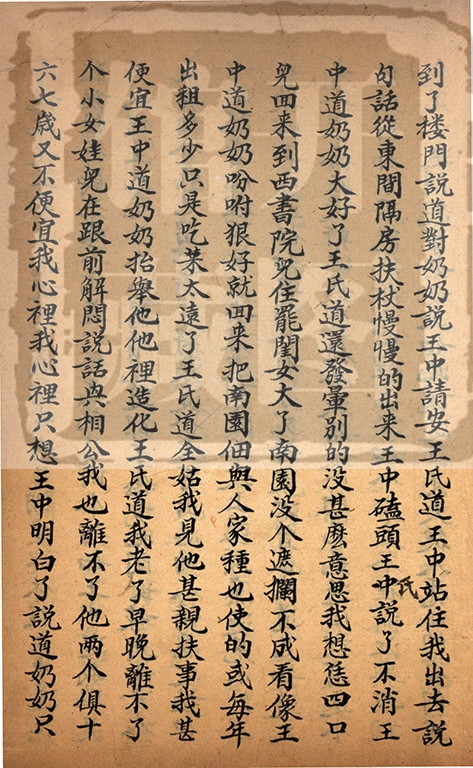 到了楼門説道對奶奶説王中請安王氏道王中站住我出去説
句話從東間隔房扶杖慢慢的出来王中磕頭王氏説了不消王
中道奶奶大好了王氏道還發暈別的没甚麽意思我想恁四口
兒回来到西書院兒住罷閨女大了南園没个遮攔不成看像王
中道奶奶吩咐狠好就回来把南園佃與人家種也使的或每年
出租多少只是吃菜太遠了王氏道全姑我見他甚親扶事我甚
便宜王中道奶奶抬舉他他裡造化王氏道我老了早晩離不了
个小女娃兒在跟前解悶説話與相公我也離不了他两个俱十
六七歳又不便宜我心裡我心裡只想王中明白了説道奶奶只